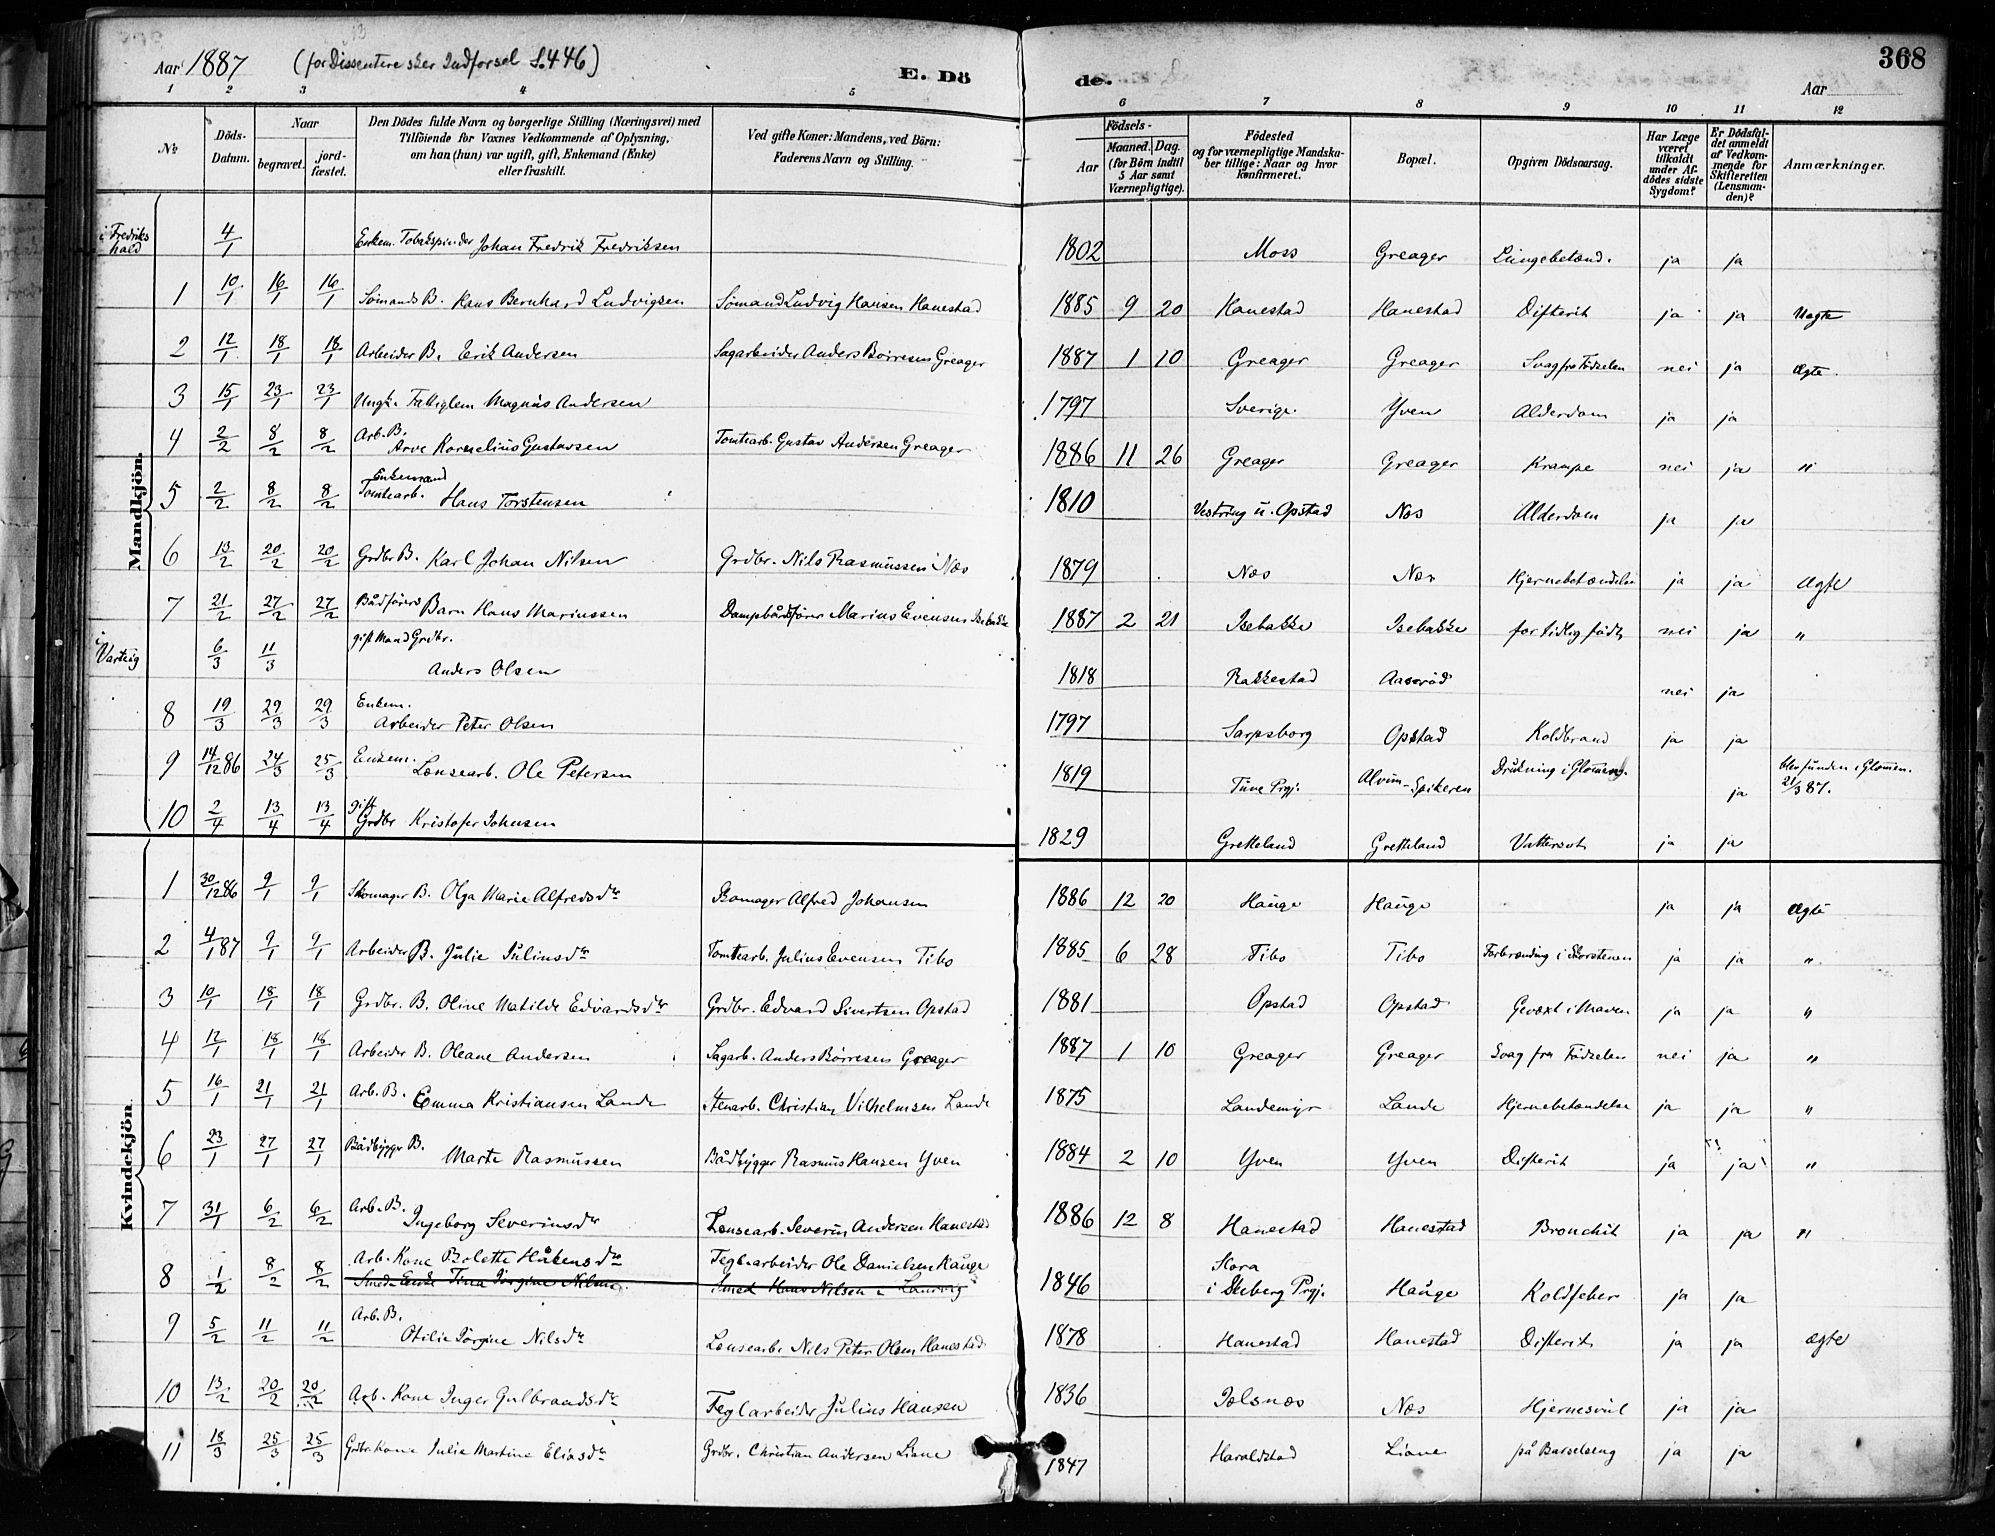 Aar 1887 (for Dissentere sker Indførsel S. 446) E. Dö de. Aar 368
1 2 3 4 5 6 7 8 9 10 11 12
No. Döds-Datum. Naar begravet. jord-fæstet. Den Dödes fulde Navn og borgerlige Stilling (Næringsvei) med Tilföiende for Voxnes Vedkommende af Oplysning, om han (hun) var ugift, gift, Enkemand (Enke) eller fraskilt. Ved gifte Koner: Mandens, ved Börn: Faderens Navn og Stilling. Födsels- Aar Maaned. Dag. (for Börn indtil 5 Aar samt Værnepligtige). Födested og for værnepligtige Mandskaber tillige: Naar og hvor konfirmeret. Bopæl. Opgiven Dödsaarsag. Har Læge været tilkaldt under Afdödes sidste Sygdom? Er Dödsfaldet anmeldt af Vedkommende for Skifteretten (Lensmanden)? Anmærkninger.
Mandkjön.
i Fredrikshald 4/1 Enkem. Tobakspinder Johan Fredrik Fredriksen 1802 Moss Greager Lungebetænd. ja ja
1 10/1 16/1 16/1 Sømands B. Hans Bernhard Ludvigsen Sømand Ludvig Hansen Hanestad 1885 9 20 Hanestad Hanestad Difterit ja ja Uægte
2 12/1 18/1 18/1 Arbeider B. Erik Andersen Sagarbeider Anders Børresen Greager 1887 1 10 Greager Greager Svag fra Fødselen nei ja ægte
3 15/1 23/1 23/1 Ungk. Fattiglem Magnus Andersen 1797 Sverige Yven Alderdom ja ja
4 2/2 8/2 8/2 Arb. B. Arve Kornelius Gustavsen Tomtearb. Gustav Andersen Greager 1886 11 26 Greager Greager Krampe nei ja "
5 2/2 8/2 8/2 Enkemand Tomtearb. Hans Torstensen 1810 Vestring u. Opstad Næs Alderdom ja ja
6 13/2 20/2 20/2 Grdbr B. Karl Johan Nilsen Grdbr. Nils Rasmussen Næs 1879 Næs Næs Hjernebetændelse ja ja ægte
7 21/2 27/2 27/2 Bådførers Barn Hans Mariussen Dampbådfører Marius Evensen Isebakke 1887 2 21 Isebakke Isebakke for tidlig født nei ja "
i Varteig 6/3 11/3 gift Mand Grdbr. Anders Olsen 1818 Rakkestad Aaserød nei ja
8 19/3 29/3 29/3 Enkem. Arbeider Peter Olsen 1797 Sarpsborg Opstad Koldbrand ja ja
9 14/12 86 24/3 25/3 Enkem. Lensearb. Ole Petersen 1819 Tune Prgj. Alvim-Spikeren Drukning i Glommen. ja blev funden i Glomen. 21/3 87.
10 2/4 13/4 13/4 gift Grdbr Kristofer Johnsen 1829 Gretteland Gretteland Vattersot ja ja
Kvindekjön.
1 30/12 86 9/1 9/1 Skomager B. Olga Marie Alfredsdtr Skomager Alfred Johansen 1886 12 20 Hauge Hauge ja ja ægte
2 4/1 87 9/1 9/1 Arbeider B. Julie Juliusdtr Tomtearb. Julius Evensen Tibo 1885 6 28 Tibo Tibo Forbrænding i Skorstenen ja ja "
3 10/1 18/1 18/1 Grdbr. B. Oline Matilde Edvardsdtr Grdbr. Edvard Sivertsen Opstad 1881 Opstad Opstad Gevæxt i Maven ja ja "
4 12/1 18/1 18/1 Arbeider B. Oleane Andersen Sagarb. Anders Børresen Greager 1887 1 10 Greager Greager Svag fra Fødselen nei ja "
5 16/1 21/1 21/1 Arb. B. Emma Kristiansen Lande Stenarb. Christian Vilhelmsen Lande 1875 Landemyr Lande Hjernebetændelse ja ja "
6 23/1 27/1 27/1 Bådbygger B. Marte Rasmussen Bådbygger Rasmus Hansen Yven 1884 2 10 Yven Yven Difterit ja ja "
7 31/1 6/2 6/2 Arb. B. Ingeborg Severinsdtr Lensearb. Severin Andersen Hanestad 1886 12 8 Hanestad Hanestad Bronchit ja ja "
8 1/2 8/2 8/2 Arb. Kone Bolette Håkensdtr Teglarbeider Ole Danielsen Hauge 1846 Hora i Skiberg Prgj. Hauge Koldfeber ja ja
Smed Enke Tina Jørgine Nilsen. Smed Hans Nilsen
9 5/2 11/2 11/2 Arb. B. Otilie Jørgine Nilsdtr Lensearb. Nils Peter Olsen Hanestad 1878 Hanestad Hanestad Difterit ja ja ægte
10 13/2 20/2 20/2 Arb. Kone Inger Gulbrandsdtr Teglarbeider Julius Hansen 1836 Isesnæs Næs Hjernesvul ja ja
11 18/3 25/3 25/3 Grdbr. Kone Julie Martine Eliasdtr Grdbr. Christian Andersen Liane 1847 Haraldstad Liane på Barselseng ja ja